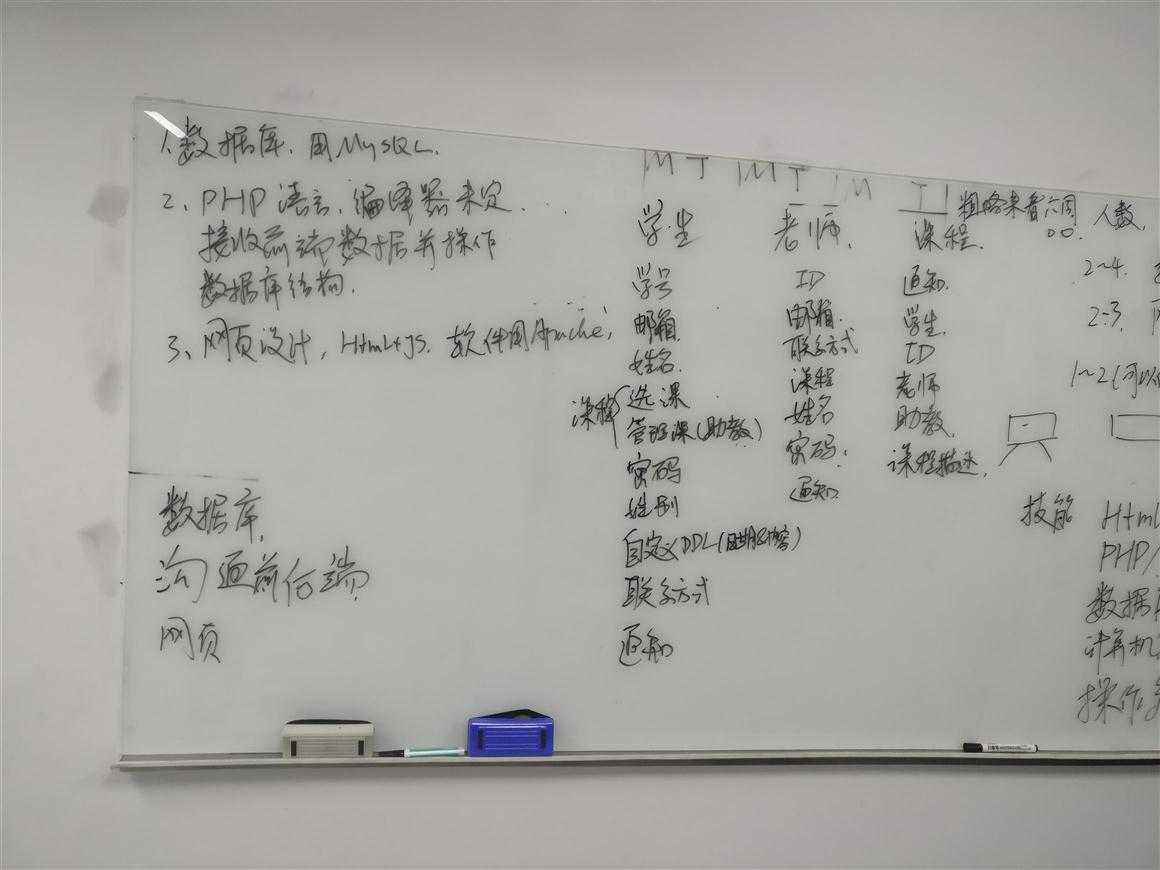 1、数据库、用MySQL.
2、PHP语言、编译器未定.
接收前端数据并操作
数据库结构.
3、网页设计, Html+JS. 软件用Apache,
数据库,
沟通前后端
网页
学生
学号
邮箱.
姓名.
课程
选课
管理课(助教)
密码
性别
自定义DDL
联系方式
通知
老师.
ID
邮箱.
联系方式
课程
姓名
密码.
通知
课程.
通知.
学生.
ID
老师
助教.
课程描述.
粗略来看六周
人数,
2~4.
2~3.
1~2(可以
技能
Html
PHP
数据
计算机
操作